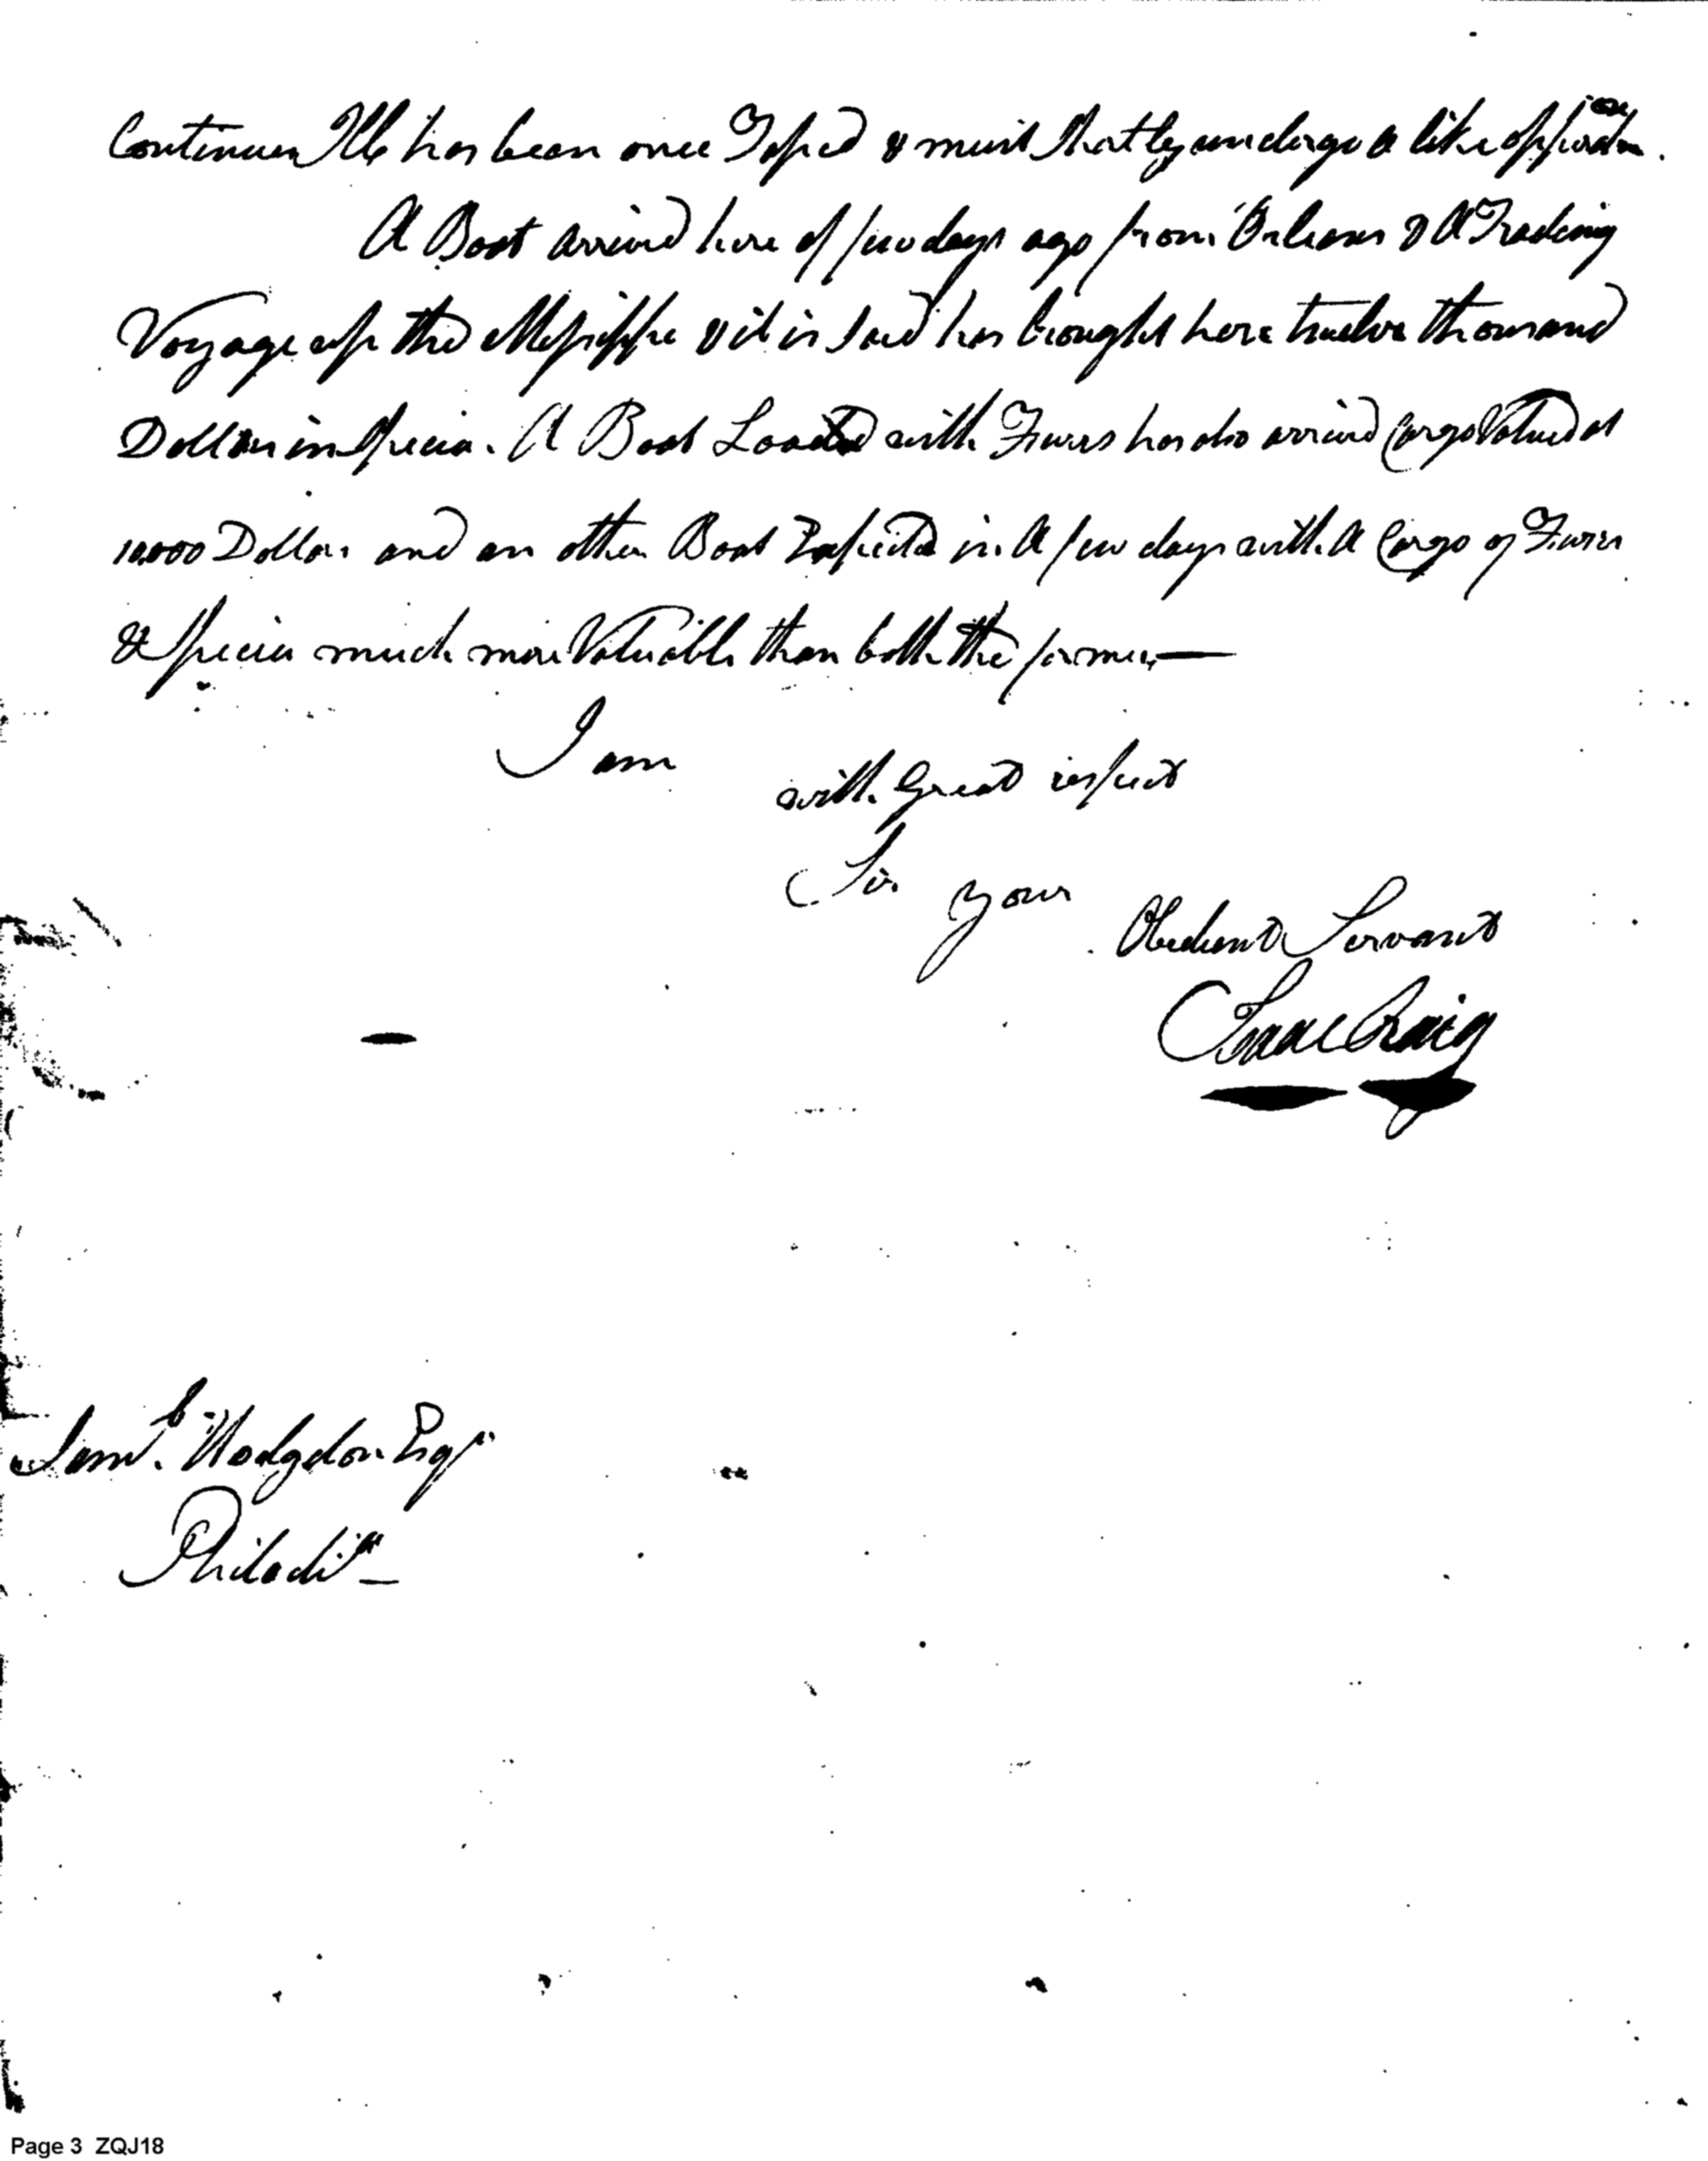 Continues Ill he has been once Taped & must Shortly undergo a like opperation.
A Boat arrived here a few days ago from Orleans & A Trading
Voyage up the Missisippi & it is said has brought here twelve thousand
Dollars in Specia. A Boat Loaded with Furrs has also arrived Cargo Valued at
10,000 Dollars and an other Boat Expected in A few days with A Cargo of Furrs
& Specia much more Valuable than both the former,—
I am
with Great respect
Sir
your
Obedient Servant
Isaac Craig
Saml. Hodgdon Esqr
Philadia —
Page 3 ZQJ18